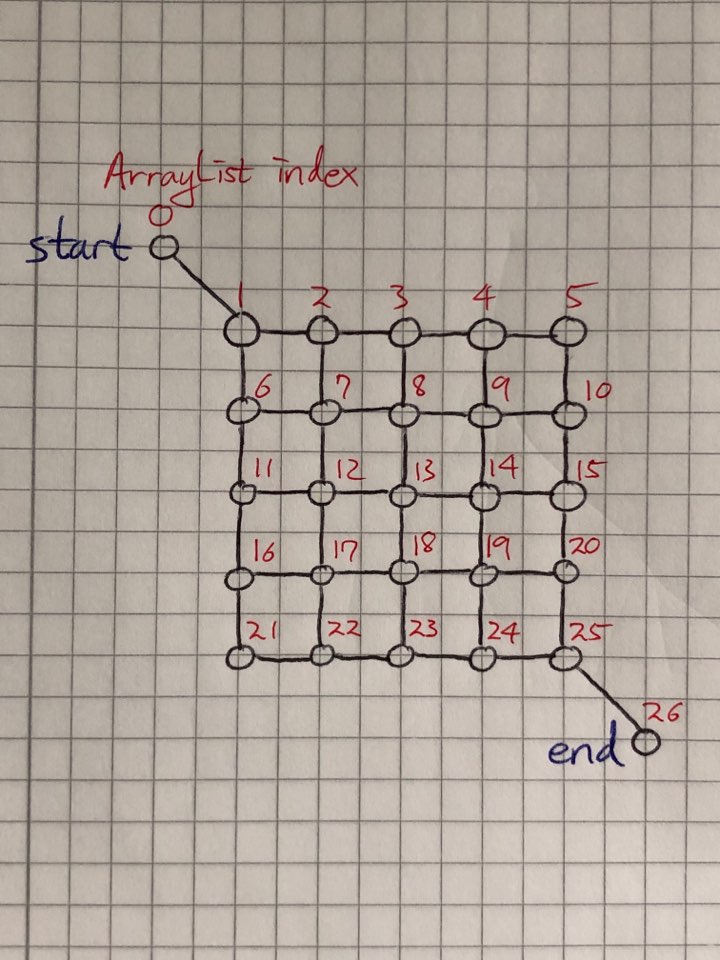 ArrayList index
0
start
1 2 3 4 5
6 7 8 9 10
11 12 13 14 15
16 17 18 19 20
21 22 23 24 25
26
end